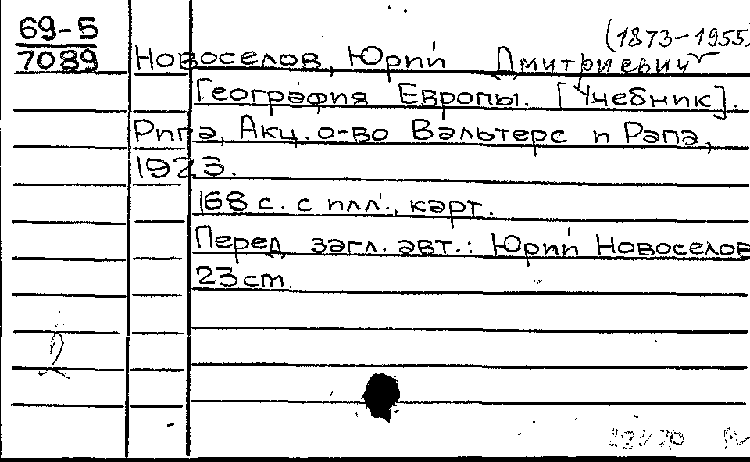 69-5
7089
(1873-1955)
Новоселов, Юрий Дмитриевич
География Европы. [Учебник].
Рига, Акц. о-во Вальтерс и Рапа,
1923.
168 с. с илл., карт.
Перед загл. авт.: Юрий Новоселов
23 cm